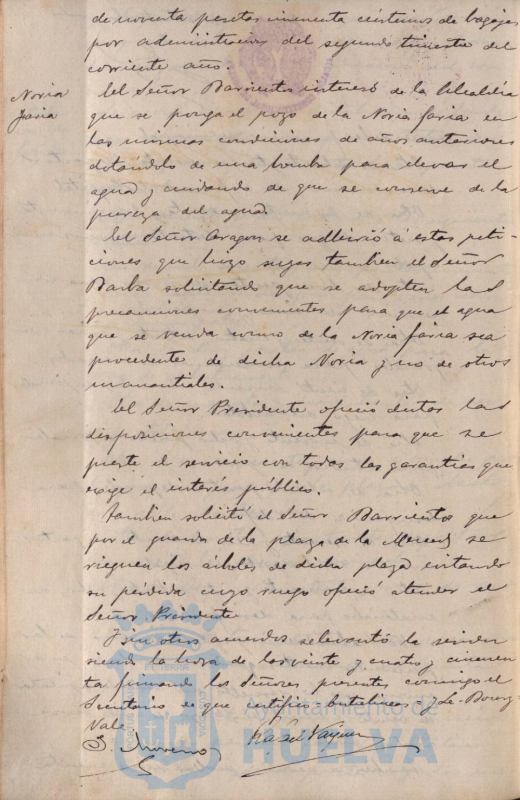 de noventa pesetas cincuenta céntimos de bagajes
por administracion del segundo trimestre del
corriente año.
Noria
Jaria
El Señor Barrientos interesó de la Alcaldía
que se ponga el pozo de la Noria Jaria en
las mismas condiciones de años anteriores
dotándolo de una bomba para elevar el
agua y cuidando de que se conserve de la
pureza del agua.
El Señor Aragon se adhirió á estas peti-
ciones que hizo suyas tambien el Señor
Barba solicitando que se adopten las
precauciones convenientes para que el agua
que se venda como de la Noria Jaria sea
procedente de dicha Noria y no de otros
manantiales.
El Señor Presidente ofreció dictar las
disposiciones convenientes para que se
preste el servicio con todas las garantías que
exige el interés público.
Tambien solicitó el Señor Barrientos que
por el guarda de la plaza de la Merced se
rieguen los árboles de dicha plaza evitando
su pérdida cuyo ruego ofreció atender el
Señor Presidente
Y sin otros acuerdos se levantó la sesion
siendo la hora de las veinte y cuatro y cincuen
ta firmando los Señores presentes conmigo el
Secretario de que certifico = =
Vale
S. Moreno
Rafael Vazquez
Ayuntamiento de
HUELVA